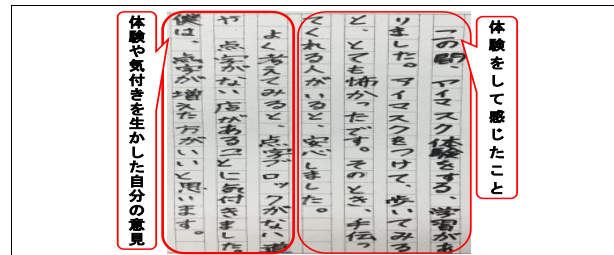 体験をして感じたこと
この間、アイマスク体験をする、学習があ
りました。アイマスクをつけて、歩いてみる
と、とても怖かったです。そのとき、手伝っ
てくれる人がいると、安心しました。
よく考えてみると、点字ブロックがない道
や、点字がない店があることに気付きました。
僕は、点字が増えた方がいいと思います。
体験や気付きを生かした自分の意見